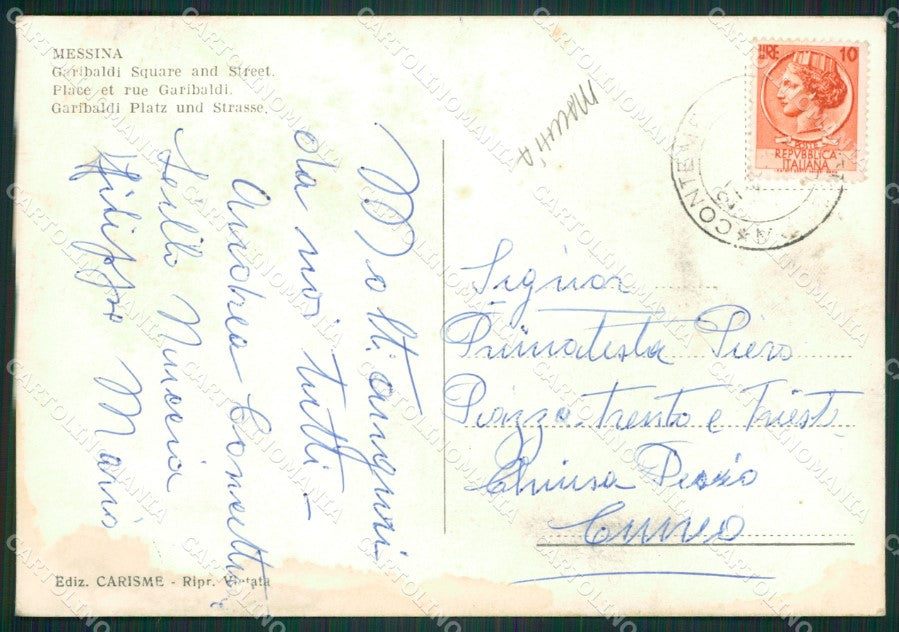 MESSINA
Garibaldi Square and Street.
Place et rue Garibaldi.
Garibaldi Platz und Strasse.
LIRE 10
REPVBBLICA
ITALIANA
Molti auguri
da noi tutti -
Andrea Concetta
Lillo Nuccia
Filippo Maria
Signor
Primatesta Piero
Piazza Trento e Trieste
Chiusa Pesio
Cuneo
Ediz. CARISME - Ripr. Vietata
CARTOLINOMANIA